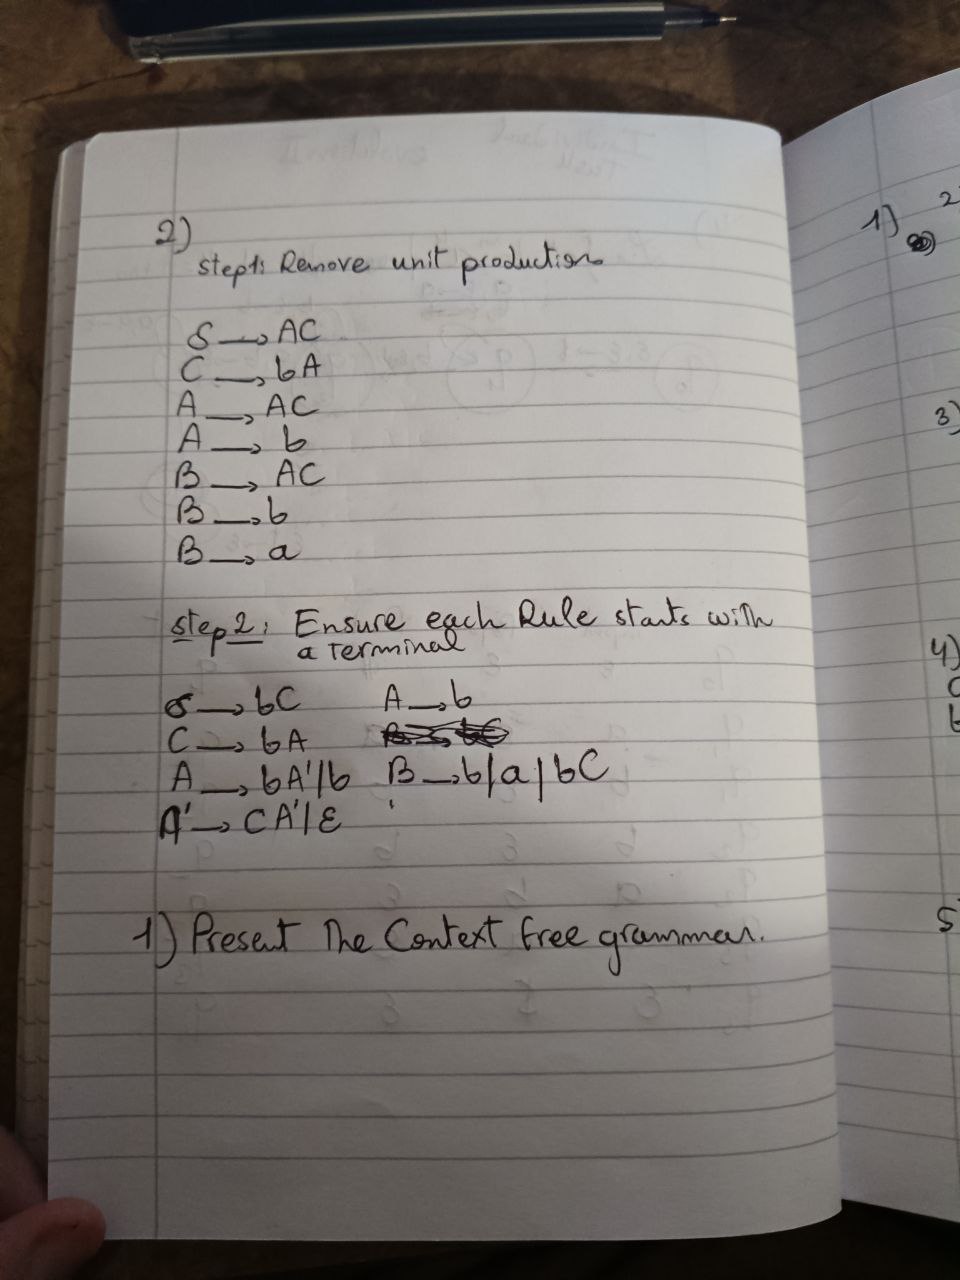 2)
step1: Remove unit production
S → AC
C → bA
A → AC
A → b
B → AC
B → b
B → a
step2: Ensure each Rule starts with
a terminal
S → bC A → b
C → bA
A → bA'/b B → b/a/bC
A' → CA'/ε
1) Present The Context free grammer.
1)
2
3)
4)
5